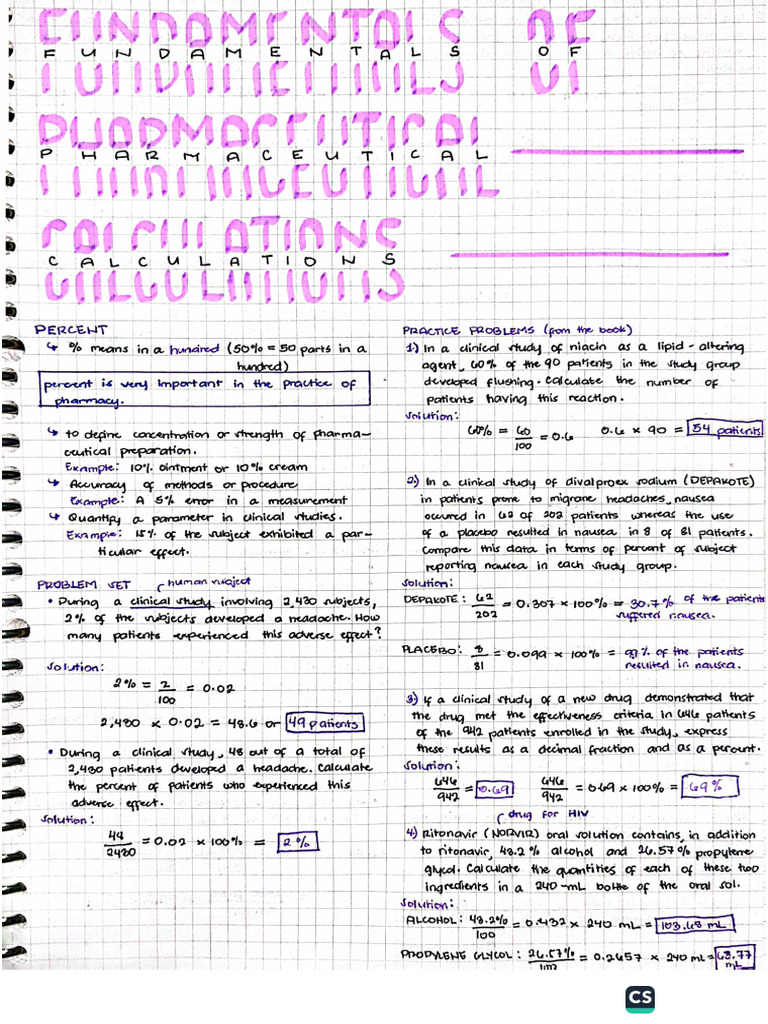 FUNDAMENTALS OF
PHARMACEUTICAL
CALCULATIONS
PERCENT
↳ % means in a hundred (50% = 50 parts in a
hundred)
percent is very important in the practice of
pharmacy.
↳ to define concentration or strength of pharma-
ceutical preparation.
Example: 10% ointment or 10% cream
↳ Accuracy of methods or procedure
Example: A 5% error in a measurement
↳ Quantify a parameter in clinical studies.
Example: 15% of the subject exhibited a par-
ticular effect.
PROBLEM SET human subject
• During a clinical study involving 2,430 subjects,
2% of the subjects developed a headache. How
many patients experienced this adverse effect?
Solution:
2% = 2/100 = 0.02
2,430 × 0.02 = 48.6 or 49 patients
• During a clinical study, 48 out of a total of
2,430 patients developed a headache. Calculate
the percent of patients who experienced this
adverse effect.
Solution:
48/2430 = 0.02 × 100% = 2%
PRACTICE PROBLEMS (from the book)
1) In a clinical study of niacin as a lipid-altering
agent, 60% of the 90 patients in the study group
developed flushing. Calculate the number of
patients having this reaction.
Solution:
60% = 60/100 = 0.6 0.6 × 90 = 54 patients
2) In a clinical study of divalproex sodium (DEPAKOTE)
in patients prone to migrane headaches, nausea
occured in 62 of 202 patients whereas the use
of a placebo resulted in nausea in 8 of 81 patients.
Compare this data in terms of percent of subject
reporting nausea in each study group.
Solution:
DEPAKOTE: 62/202 = 0.307 × 100% = 30.7% of the patients
suffered nausea.
PLACEBO: 8/81 = 0.099 × 100% = 9.9% of the patients
resulted in nausea.
3) If a clinical study of a new drug demonstrated that
the drug met the effectiveness criteria in 646 patients
of the 942 patients enrolled in the study, express
these results as a decimal fraction and as a percent.
Solution:
646/942 = 0.69 646/942 = 0.69 × 100% = 69%
drug for HIV
4) Ritonavir (NORVIR) oral solution contains, in addition
to ritonavir, 43.2% alcohol and 26.57% propylene
glycol. Calculate the quantities of each of these two
ingredients in a 240-mL bottle of the oral sol.
Solution:
ALCOHOL: 43.2%/100 = 0.432 × 240 mL = 103.68 mL
PROPYLENE GLYCOL: 26.57%/100 = 0.2657 × 240 mL = 63.77
mL
CS